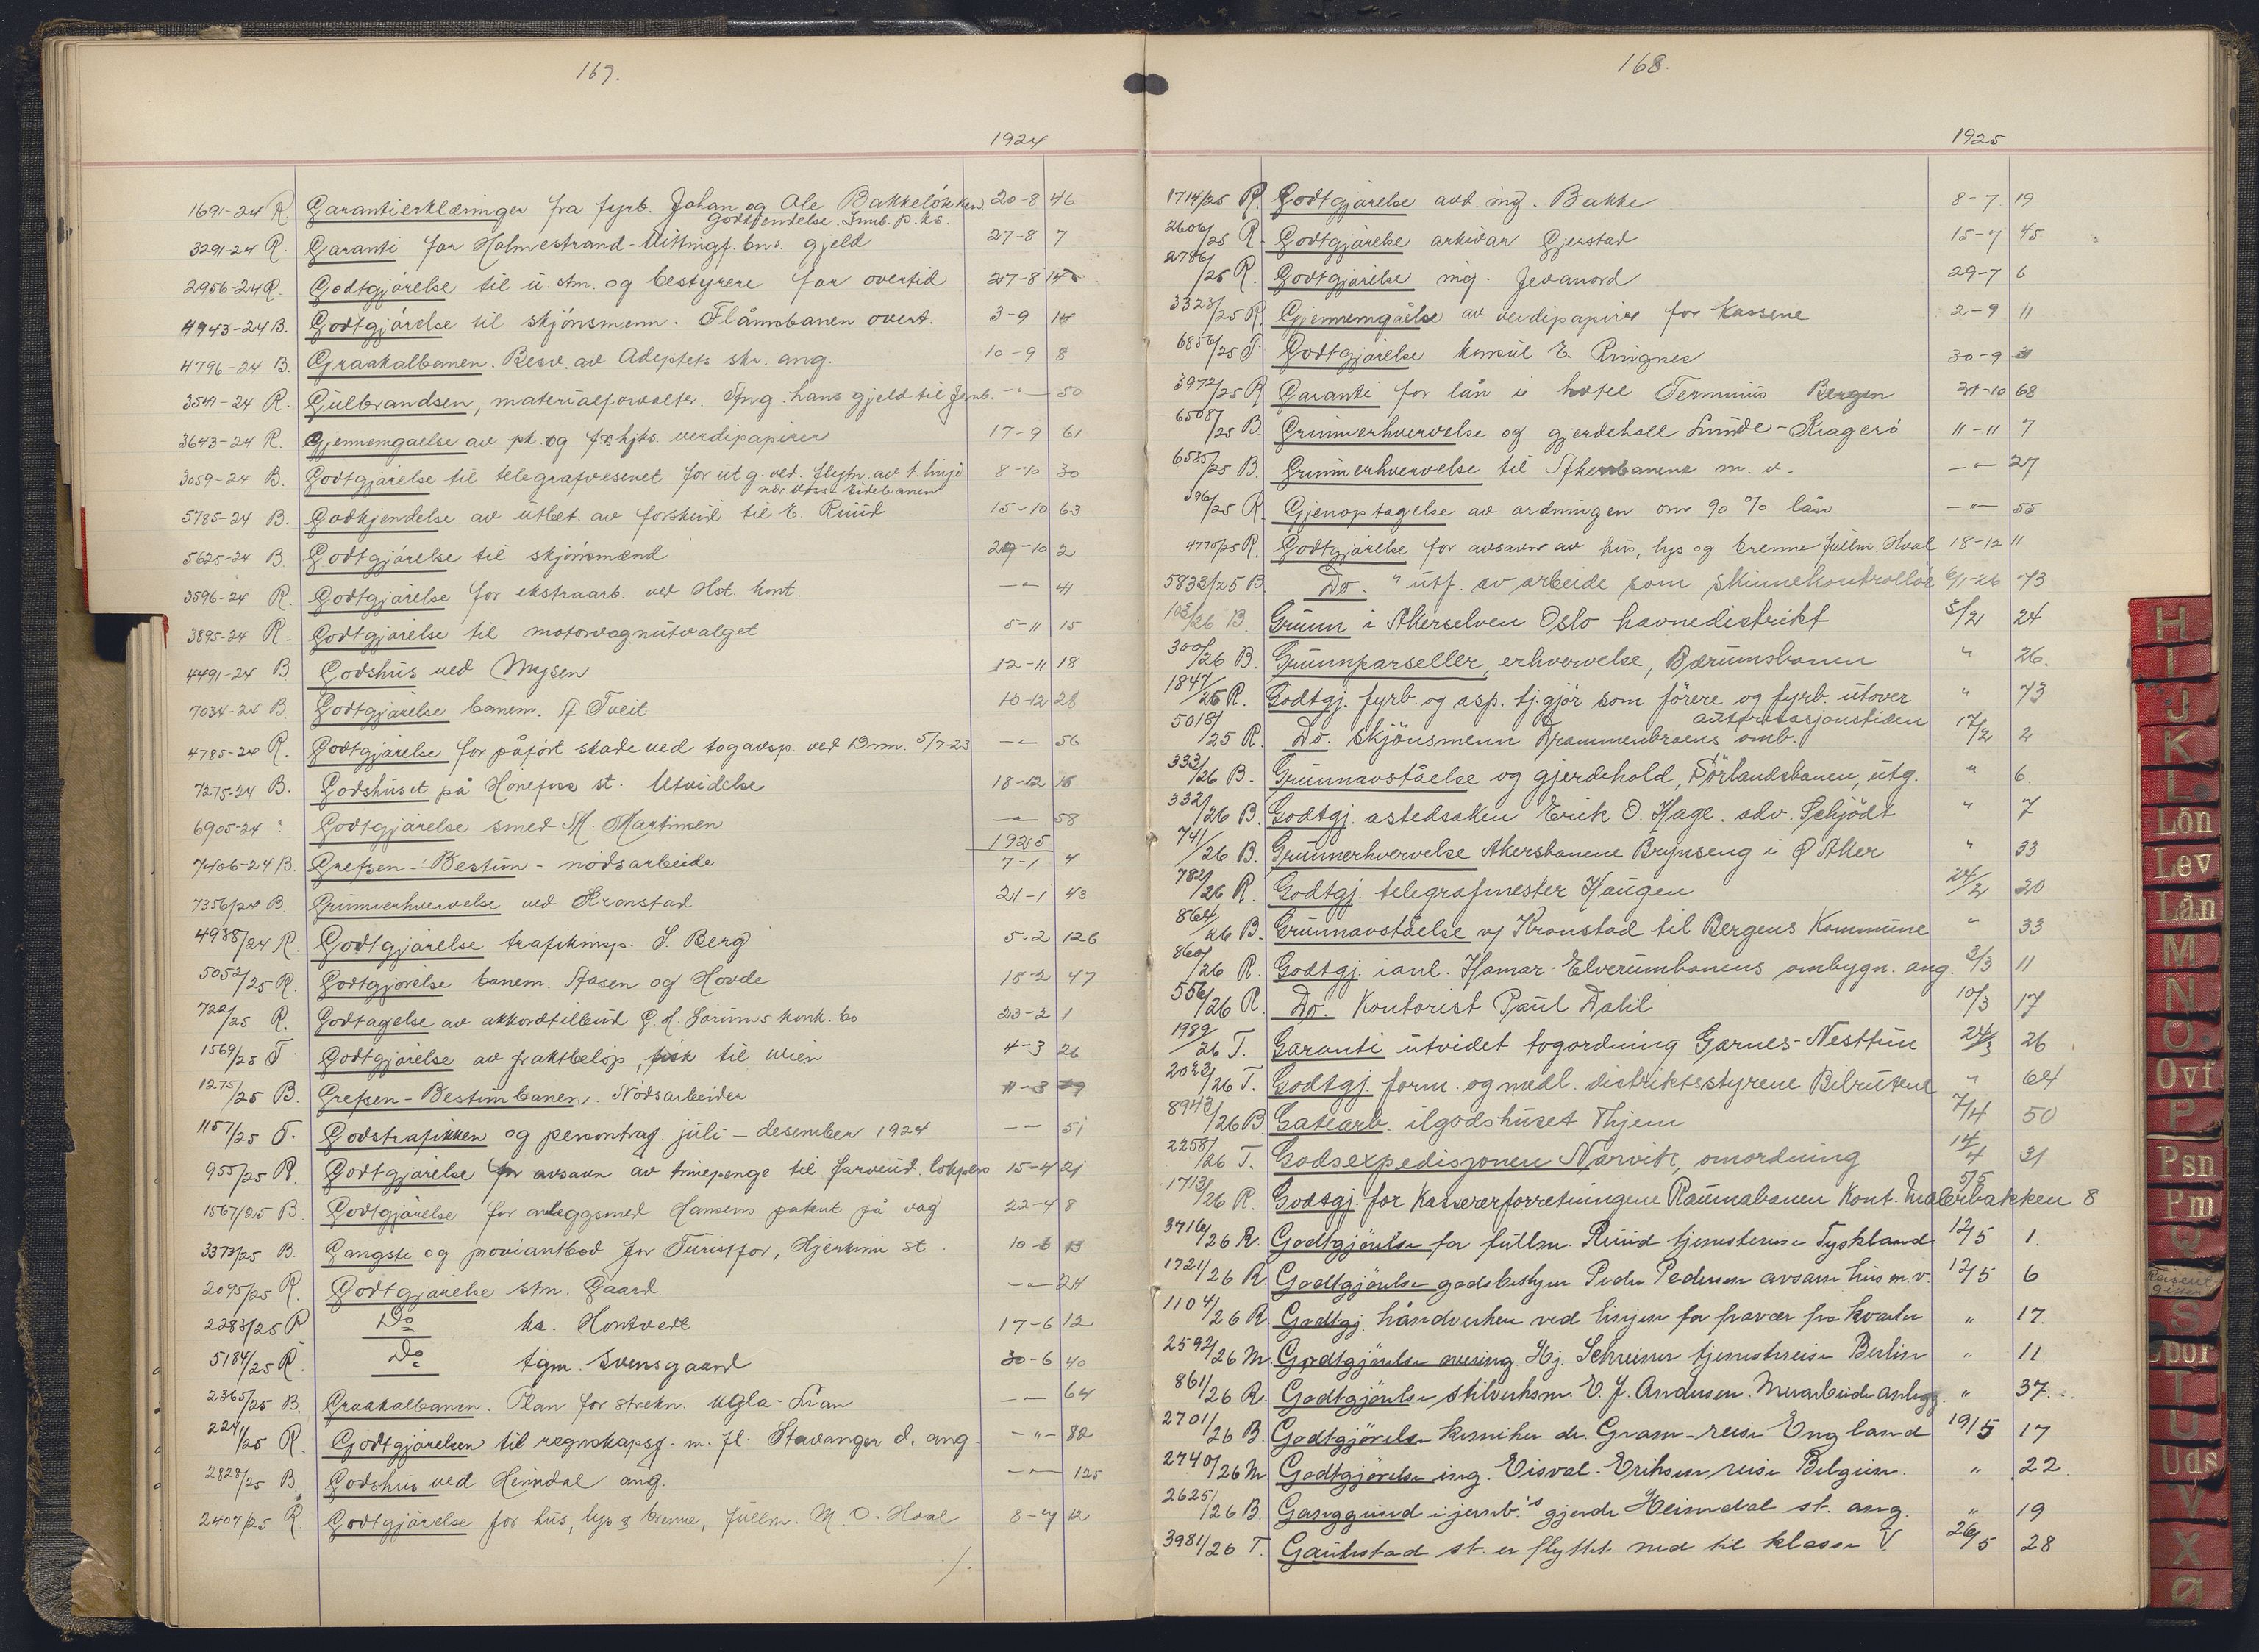 167.
1924
1691-24 R. Garantierklæringer fra fyrb. Johan og Ole Bakkeløkken 20-8 46
godkjendelse. Innb. p. ks.
3291-24 R. Garanti for Holmestrand-Vittingf. bns. gjeld 27-8 7
2956-24 R. Godtgjørelse til u. stm. og bestyrere for overtid 27-8 14
4943-24 B. Godtgjørelse til skjønsmenn. Flåmsbanen overt. 3-9 14
4796-24 B. Graakalbanen. Besv. av Adeptets skr. ang. 10-9 8
3541-24 R. Gulbrandsen, materialforvalter. Ang. hans gjeld til Jernb. -"- 50
3643-24 R. Gjennemgaelse av pk. og fs. hjks. verdipapirer 17-9 61
3059-24 B. Godtgjørelse til telegrafvesenet for utg. ved. flytn. av t. linje 8-10 30
ndr. Voss-Eidebanen
5785-24 B. Godkjendelse av utbet. av forskud til E. Ruud 15-10 63
5625-24 B. Godtgjørelse til skjønsmænd 29-10 2
3596-24 R. Godtgjørelse for ekstraarb. ved Hst. kont. -"- 41
3895-24 R. Godtgjørelse til motorvognutvalget 5-11 15
4491-24 B Godshus ved Mysen 12-11 18
7034-24 B. Godtgjørelse banem. Tveit 10-12 28
4785-24 R. Godtgjørelse for påført skade ved togavsp. ved Drm. 5/7-23 -"- 56
7275-24 B. Godshuset på Hønefoss st. Utvidelse 18-12 18
6905-24 " Godtgjørelse smed M. Martinsen -"- 58
1925
7406-24 B. Grefsen-Bestun-nødsarbeide 7-1 4
7356/24 B. Grunnerhvervelse ved Kronstad 21-1 43
4938/24 R. Godtgjørelse trafikinsp. S. Berg 5-2 126
5052/25 R. Godtgjørelse banem. Aasen og Hovde 18-2 47
722/25 R. Godtagelse av akkordtilbud G. H. Sørums konk. bo 23-2 1
1569/25 T. Godtgjørelse av fraktbeløp, fisk til Wien 4-3 26
1275/25 B. Grefsen-Bestumbanen. Nødsarbeider 11-3 29
1157/25 T. Godstrafikken og persontraf. juli - desember 1924 -- 51
955/25 R. Godtgjørelse for avsavn av timepenge til farveud. lokpers 15-4 21
1567/25 B. Godtgjørelse for anleggsmed Hansens patent på vag 22-4 8
3373/25 B. Gangsti og proviantbod for Turistfor, Hjerkinn st. 10-6 13
2095/25 R. Godtgjørelse stm. Gaard. -"- 24
2283/25 R Do ks. Hontvedt 17-6 12
5184/25 R. Do tgm. Svensgaard 30-6 40
2365/25 B. Graakalbanen. Plan for strekn. Ugla-Lian -- 64
2241/25 R. Godtgjørelsen til regnskapsf. m. fl. Stavanger d. ang. -"- 82
2828/25 B. Godshus ved Heimdal ang. -"- 125
2407/25 R. Godtgjørelse for hus, lys & brenne, fullm. M. O. Hval 8-7 12
./.
168.
1925
1714/25 R. Godtgjørelse avd. ing. Bakke 8-7 19
2606/25 R. Godtgjørelse arkivar Gjerstad 15-7 45
2786/25 R. Godtgjørelse ing. Jevanord 29-7 6
3323/25 R. Gjennemgåelse av verdipapirer for kassene 2-9 11
6856/25 T. Godtgjørelse konsul E. Ringnes 30-9 31
3972/25 R Garanti for lån i hotel Terminus Bergen 21-10 68
6508/25 B. Grunnerhvervelse og gjerdehold Lunde-Kragerø 11-11 7
6585/25 B. Grunnerhvervelse til Akersbanene m. v. -"- 27
596/25 R. Gjenoptagelse av ordningen om 90 % lån -"- 55
4770/25 R. Godtgjørelse for avsavn av hus, lys og brenne fullm. Hval 18-12 11
5833/25 B Do. " utf. av arbeide som skinnekontrollør 6/1-26 73
103/26 B. Grunn i Akerselven Oslo havnedistrikt 3/2 24
300/26 B. Grunnparseller, erhvervelse, Bærumsbanen " 26.
1847/26 R. Godtgj. fyrb. og asp. tj.gjør som førere og fyrb. utover " 73
autorisasjonstiden
5018/25 R. Do. skjønsmenn Drammenbroens omb. 17/2 2
333/26 B. Grunnavståelse og gjerdehold, Sørlandsbanen, utg. " 6.
332/26 B. Godtgj. åstedsaken Erik O. Hage. adv. Schjødt " 7
741/26 B. Grunnerhvervelse Akersbanene Brynseng i Ø Aker " 33
782/26 R. Godtgj. telegrafmester Haugen 24/2 20
864/26 B. Grunnavståelse v/ Kronstad til Bergens Kommune " 33
860/26 R. Godtgj. ianl. Hamar-Elverumbanens ombygn. ang. 3/3 11
556/26 R. Do. Kontorist Paul Dahl 10/3 17
1989/26 T. Garanti utvidet togordning Garnes-Nesttun 24/3 26
2023/26 T. Godtgj. form. og medl. distriktsstyrene Bilrutene " 64
8943/26 B. Gatearb. ilgodshuset Thjem 7/4 50
2258/26 T. Godsexpedisjonen Narvik, omordning 14/4 31
1713/26 R. Godtgj. for Kassererforretningene Raumabanen Kont. Malerbakken 5/5 8
3716/26 R. Godtgjørelse for fullm. Ruud tjenestereise Tyskland 12/5 1.
1721/26 R. Godtgjørelse godsbestyrer Peder Pedersen avsavn hus m. v. 12/5 6
1104/26 R. Godtgj. håndverkere ved linjen for fravær fra kvarter " 17.
2592/26 M. Godtgjørelse avd.ing. Hj. Schreiner tjenestereise Berlin " 11
861/26 R. Godtgjørelse stilverksm. E. J. Andersen. Merarbeide anlegg. " 37.
2701/26 B. Godtgjørelse kemiker dr. Gram-reise England 19/5 17
2740/26 M Godtgjørelse ing. Eisval-Eriksen reise Belgien. " 22
2625/26 B. Ganggrind i jernb.'s gjerde Heimdal st. ang. " 19
3981/26 T. Gaustad st. er flyttet ned til klasse V. 26/5 28
H
I
J
K
L
Løn
Lev
Lån
M
N
O
Ovf
P
Psn
Pm
Q
S
Spor
T
U
Uds
V
X
Ø